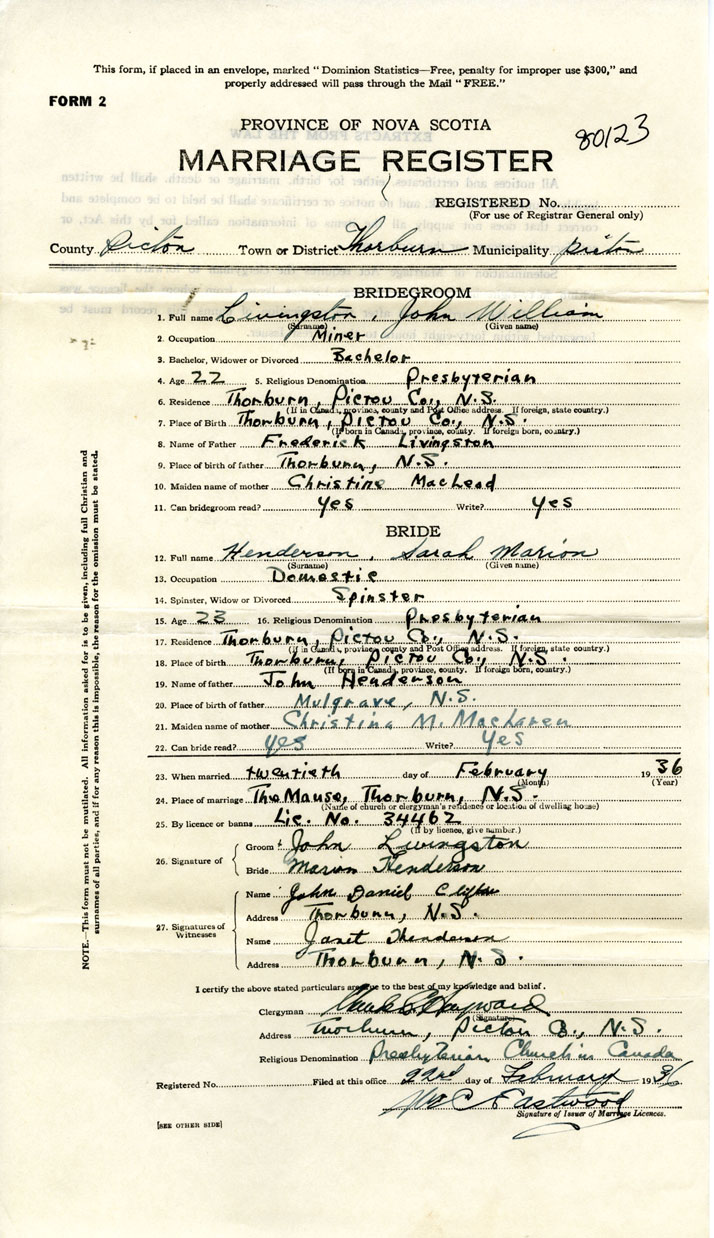 This form, if placed in an envelope, marked "Dominion Statistics—Free, penalty for improper use $300," and
properly addressed will pass through the Mail "FREE."
FORM 2
PROVINCE OF NOVA SCOTIA
80123
MARRIAGE REGISTER
REGISTERED No.
(For use of Registrar General only)
County Pictou Town or District Thorburn Municipality Pictou
BRIDEGROOM
1. Full name Livingston, John William
(Surname) (Given name)
2. Occupation Miner
3. Bachelor, Widower or Divorced Bachelor
4. Age 22 5. Religious Denomination Presbyterian
6. Residence Thorburn, Pictou Co., N.S.
(If in Canada, province, county and Post Office address. If foreign, state country.)
7. Place of Birth Thorburn, Pictou Co., N.S.
(If born in Canada, province, county. If foreign born, country.)
8. Name of Father Frederick Livingston
9. Place of birth of father Thorburn, N.S.
10. Maiden name of mother Christine MacLeod
11. Can bridegroom read? Yes Write? Yes
BRIDE
12. Full name Henderson, Sarah Marion
(Surname) (Given name)
13. Occupation Domestic
14. Spinster, Widow or Divorced Spinster
15. Age 23 16. Religious Denomination Presbyterian
17. Residence Thorburn, Pictou Co., N.S.
(If in Canada, province, county and Post Office address. If foreign, state country.)
18. Place of birth Thorburn, Pictou Co., N.S.
(If born in Canada, province, county. If foreign born, country.)
19. Name of father John Henderson
20. Place of birth of father Mulgrave, N.S.
21. Maiden name of mother Christina M. MacLaren
22. Can bride read? Yes Write? Yes
23. When married twentieth day of February 1936
(Month) (Year)
24. Place of marriage The Manse, Thorburn, N.S.
(Name of church or clergyman's residence or location of dwelling house)
25. By licence or banns Lic. No. 34462
(If by licence, give number.)
26. Signature of
Groom John Livingston
Bride Marion Henderson
27. Signatures of Witnesses
Name John Daniel
Address Thorburn, N.S.
Name Janet Henderson
Address Thorburn, N.S.
I certify the above stated particulars are true to the best of my knowledge and belief.
Clergyman Hayward
(Signature)
Address Thorburn, Pictou Co., N.S.
Religious Denomination Presbyterian Church in Canada
Registered No. Filed at this office 22nd day of February 1936
Eastwood
Signature of Issuer of Marriage Licences.
[SEE OTHER SIDE]
NOTE.—This form must not be mutilated. All information asked for is to be given, including full Christian and
surnames of all parties, and if for any reason this is impossible, the reason for the omission must be stated.